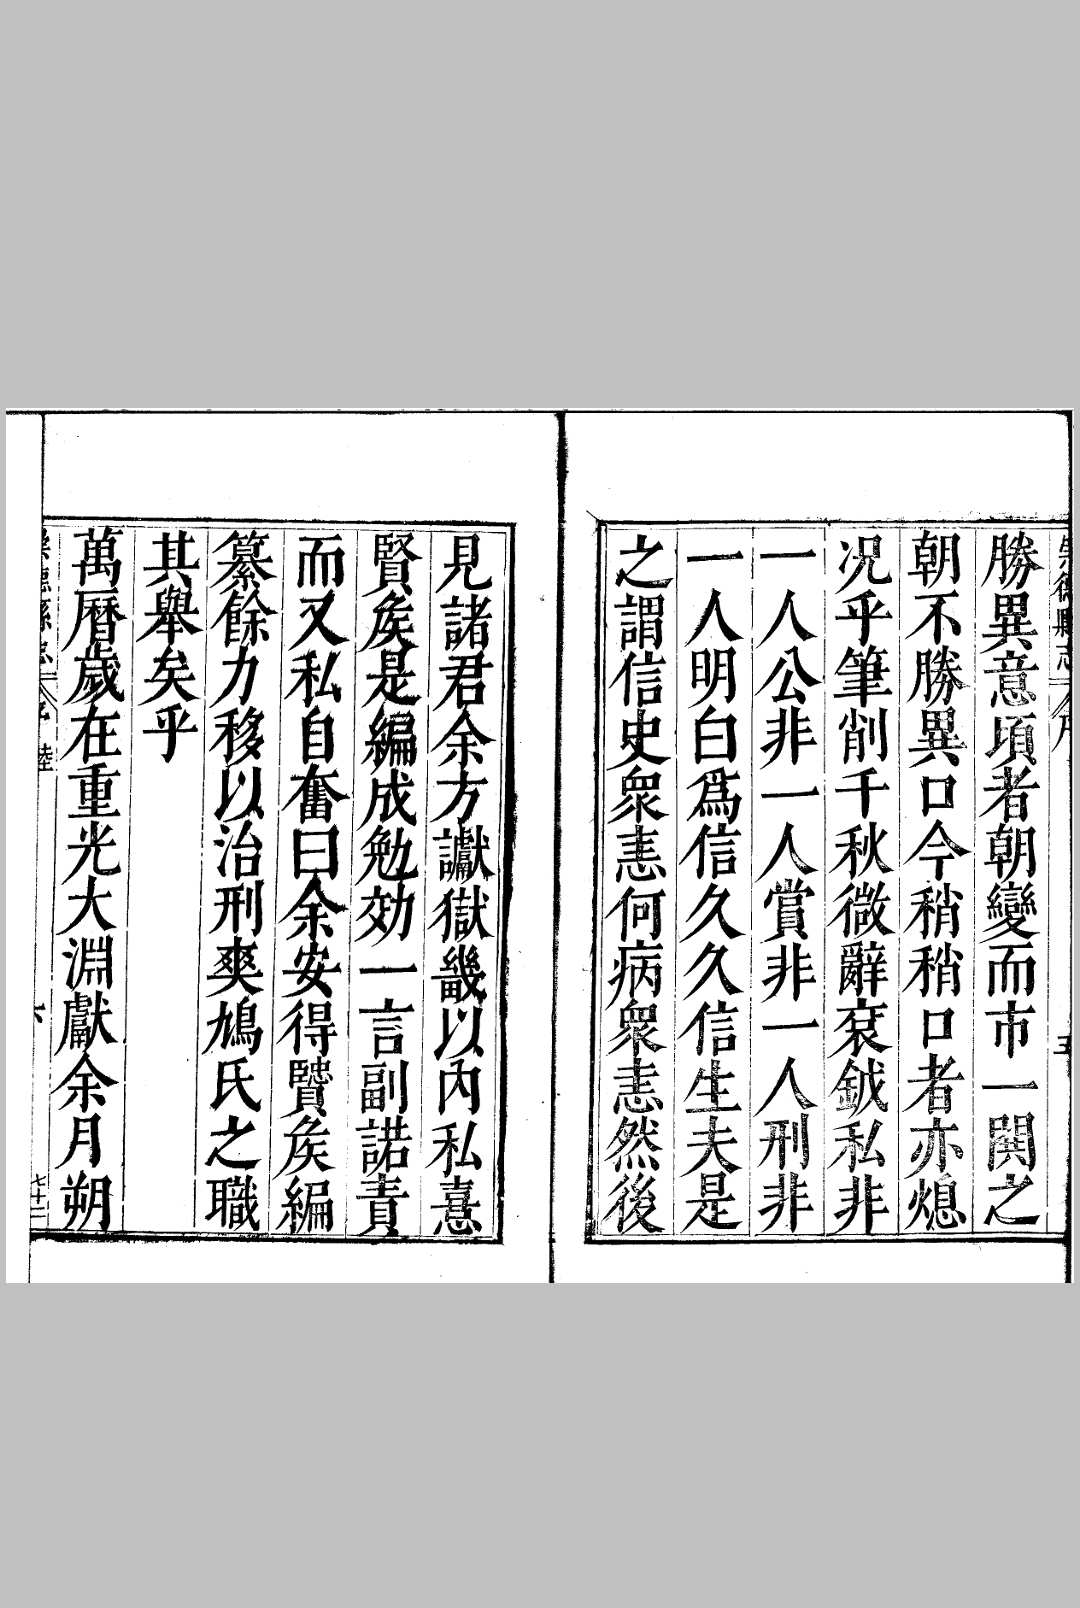 崇德縣志 序 五
勝異意頃者朝變而市一閧之
朝不勝異口今稍稍口者亦熄
况乎筆削千秋微辭袞鉞私非
一人公非一人賞非一人刑非
一人明白爲信久久信生夫是
之謂信史衆恚何病衆恚然後
見諸君余方讞獄畿以內私憙
賢矦是編成勉効一言副諾責
而又私自奮曰余安得賢矦編
纂餘力移以治刑爽鳩氏之職
其舉矣乎
萬曆歲在重光大淵獻余月朔
崇德縣志 六